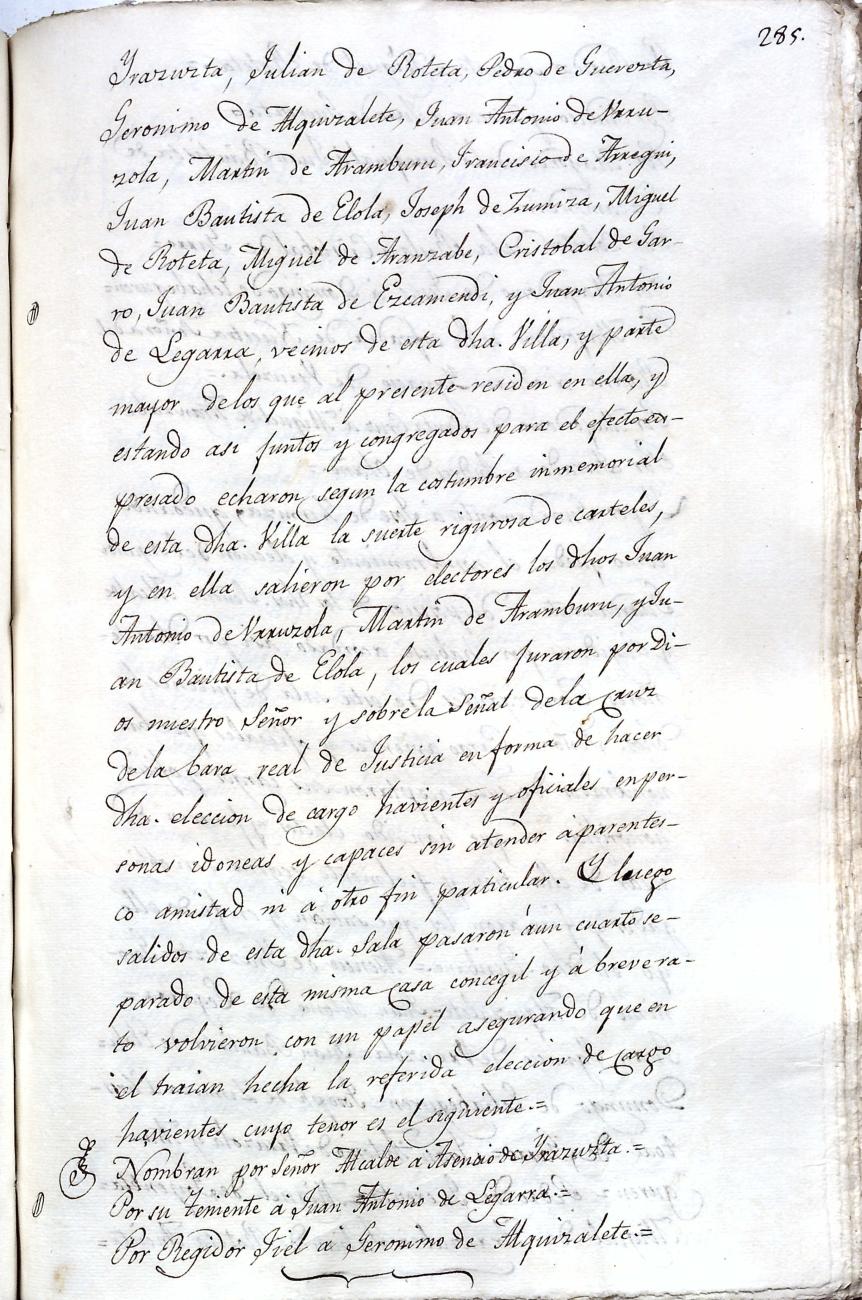 285.
Yrazuzta, Julian de Roteta, Pedro de Guerezta,
Geronimo de Alquizalete, Juan Antonio de Vrru-
zola, Martin de Aramburu, Francisco de Arregui,
Juan Bautista de Elola, Joseph de Zumiza, Miguel
de Roteta, Miguel de Aranzabe, Cristobal de Gar-
ro, Juan Bautista de Ezcamendi, y Juan Antonio
de Legarra, vecinos de esta dha. Villa, y parte
mayor delos que al presente residen en ella, y
estando asi juntos y congregados para el efecto ex-
presado echaron segun la costumbre inmemorial
de esta dha. Villa la suerte rigurosa de carteles,
y en ella salieron por electores los dhos Juan
Antonio de Vrruzola, Martin de Aramburu, y Ju-
an Bautista de Elola, los cuales juraron por Di-
os nuestro Señor y sobre la Señal dela Cruz
dela bara real de Justicia en forma de hacer
dha. eleccion de cargo havientes y oficiales en per-
sonas idoneas y capaces sin atender á parentes-
co amistad ni á otro fin particular. Y luego
salidos de esta dha. Sala pasaron áun cuarto se-
parado de esta misma Casa concegil y á breve ra-
to volvieron con un papel asegurando que en
el traian hecha la referida eleccion de Cargo
havientes cuyo tenor es el siguiente.=
Nombran por Señor Alcalde á Asencio de Yrazuzta.=
Por su Teniente á Juan Antonio de Legarra.=
Por Regidor Fiel á Geronimo de Alquizalete.=